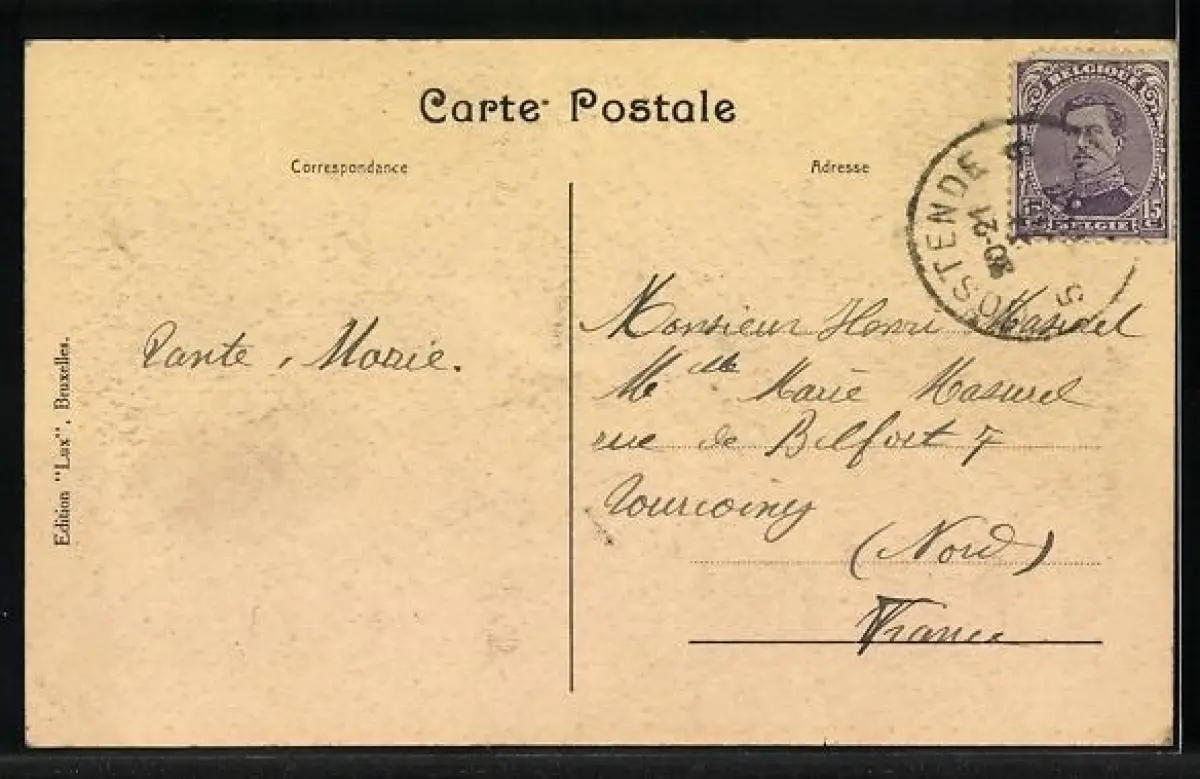 Carte Postale
Correspondance
Adresse
BELGIQUE
15
15
BELGIË
OSTENDE
20-21
5
Monsieur Henri Masurel
Mdlle Marie Masurel
rue de Belfort 7
Tourcoing
(Nord)
France
Tante, Marie.
Edition "Lux", Bruxelles.